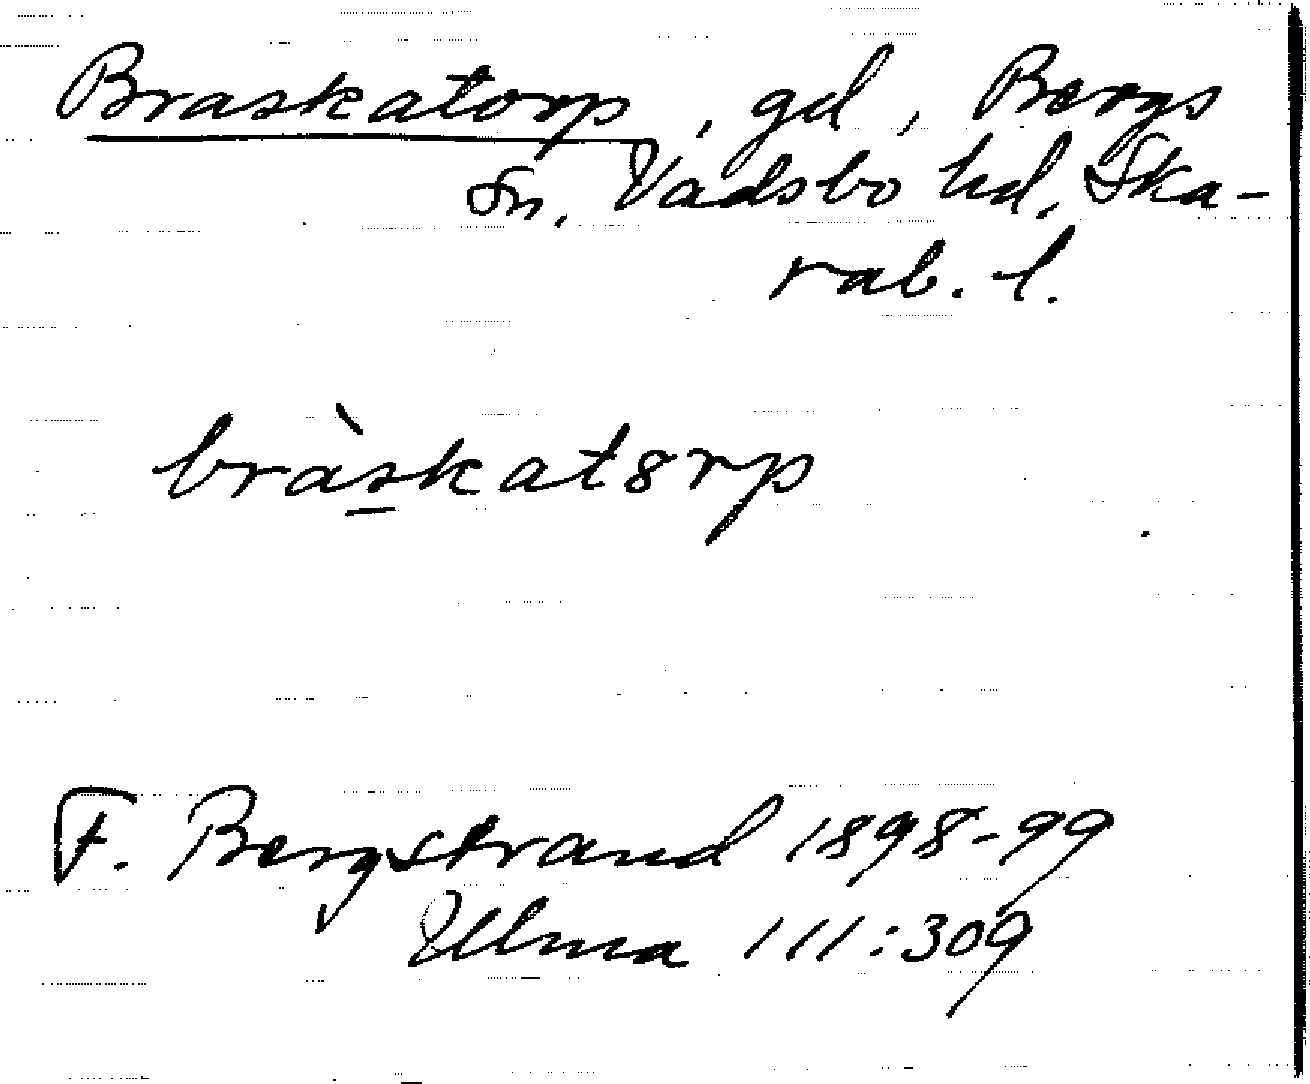 Braskatorp, gd, Bergs
sn. Vadsbo hd, Ska-
rab. l.
bràskatȣrp
F. Bergstrand 1898-99
Ulma 111:309